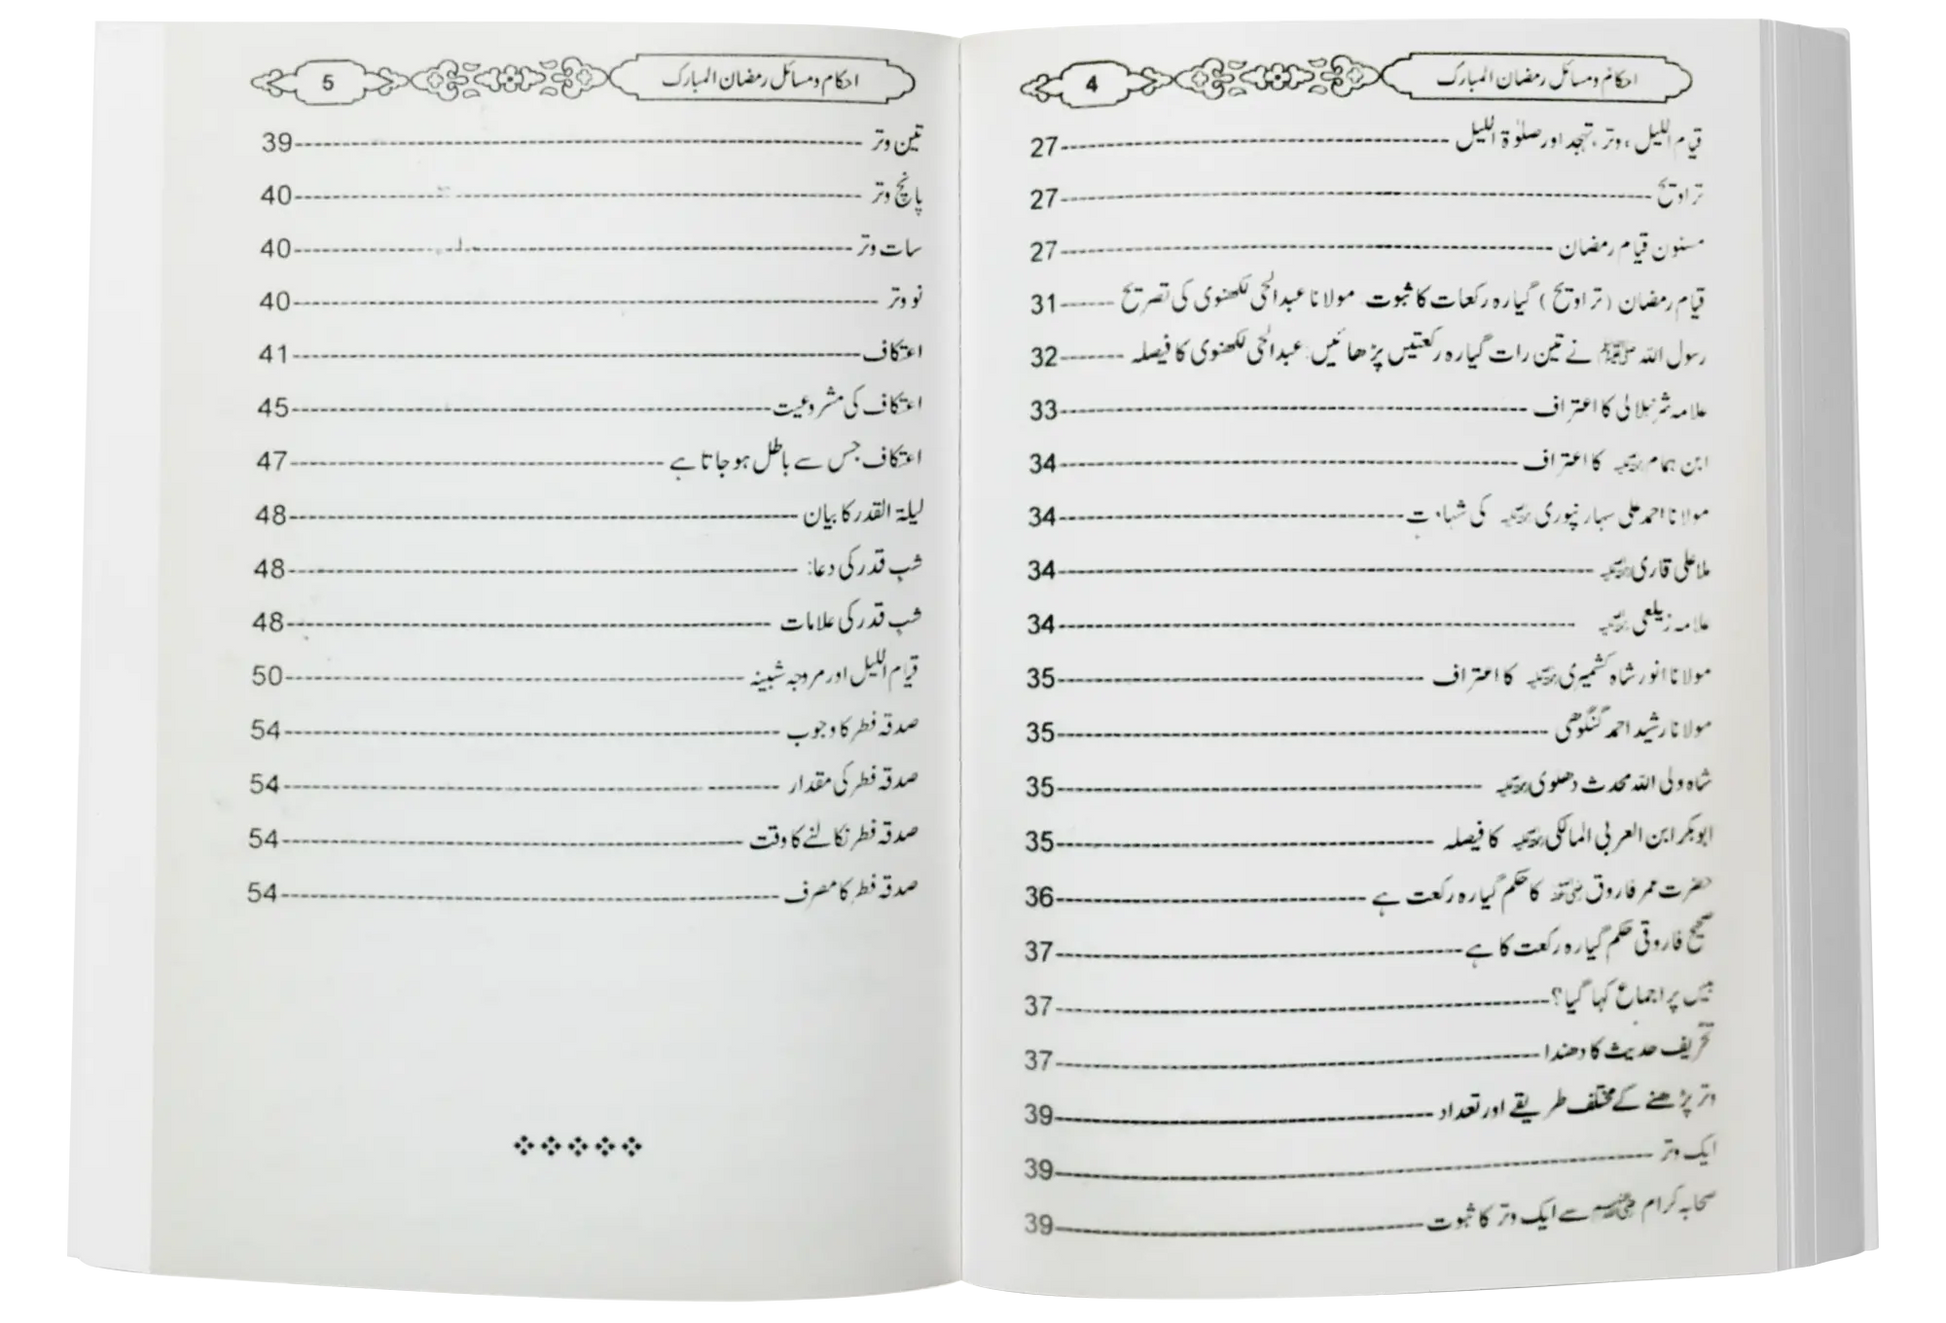 احکام ومسائل رمضان المبارک 4
قیام اللیل، وتر، تہجد اور صلوٰۃ اللیل 27
تراویح 27
مسنون قیام رمضان 27
قیام رمضان (تراویح) گیارہ رکعات کا ثبوت مولانا عبدالحئی لکھنوی کی تصریح 31
رسول اللہ ﷺ نے تین رات گیارہ رکعتیں پڑھائیں: عبدالحئی لکھنوی کا فیصلہ 32
علامہ شرنبلالی کا اعتراف 33
ابن ہمام رحمہ اللہ کا اعتراف 34
مولانا احمد علی سہارنپوری رحمہ اللہ کی شہادت 34
ملا علی قاری رحمہ اللہ 34
علامہ زیلعی رحمہ اللہ 34
مولانا انور شاہ کشمیری رحمہ اللہ کا اعتراف 35
مولانا رشید احمد گنگوھی 35
شاہ ولی اللہ محدث دھلوی رحمہ اللہ 35
ابوبکر ابن العربی المالکی رحمہ اللہ کا فیصلہ 35
حضرت عمر فاروق رضی اللہ عنہ کا حکم گیارہ رکعت ہے 36
صحیح فاروقی حکم گیارہ رکعت کا ہے 37
بیس پر اجماع کہا گیا؟ 37
تحریف حدیث کا دھندا 37
وتر پڑھنے کے مختلف طریقے اور تعداد 39
ایک وتر 39
صحابہ کرام رضی اللہ عنہم سے ایک وتر کا ثبوت 39
احکام ومسائل رمضان المبارک 5
تین وتر 39
پانچ وتر 40
سات وتر 40
نو وتر 40
اعتکاف 41
اعتکاف کی مشروعیت 45
اعتکاف جس سے باطل ہو جاتا ہے 47
لیلۃ القدر کا بیان 48
شب قدر کی دعا: 48
شب قدر کی علامات 48
قیام اللیل اور مروجہ شبینہ 50
صدقہ فطر کا وجوب 54
صدقہ فطر کی مقدار 54
صدقہ فطر نکالنے کا وقت 54
صدقہ فطر کا مصرف 54